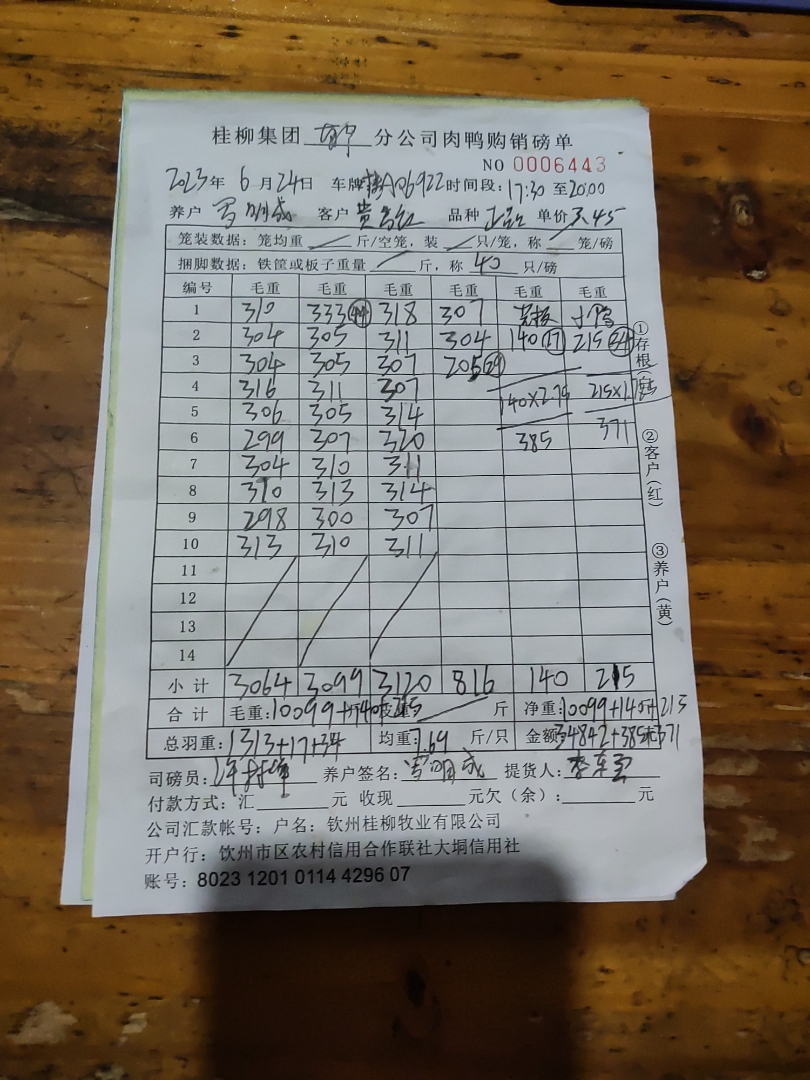 桂柳集团 分公司肉鸭购销磅单
NO 0006443
2023年 6月24日 车牌 A06922 时间段: 17:30 至 20:00
养户 罗明成 客户 黄 品种 正品 单价 3.45
笼装数据: 笼均重 / 斤/空笼, 装 / 只/笼, 称 笼/磅
捆脚数据: 铁筐或板子重量 / 斤, 称 40 只/磅
编号 毛重 毛重 毛重 毛重 毛重 毛重
1 310 333 44 318 307 小鸭
2 304 305 311 304 140 17 215 34
3 304 305 307 205 29
4 316 311 307 140×2.75 215×1.725
5 306 305 314
6 299 307 320 385 371
7 304 310 311
8 310 313 314
9 298 300 307
10 313 310 311
11
12
13
14
小计 3064 3099 3120 816 140 215
合计 毛重: 10099+140+215 皮重: / 斤 净重: 10099+140+215
总羽重: 1313+17+34 均重: 7.69 斤/只 金额: 34842+385+371
司磅员: 养户签名: 罗明成 提货人: 李东
付款方式: 汇 元 收现 元欠(余): 元
公司汇款帐号: 户名: 钦州桂柳牧业有限公司
开户行: 饮州市区农村信用合作联社大垌信用社
账号: 8023 1201 0114 4296 07
①存根(白)
②客户(红)
③养户(黄)